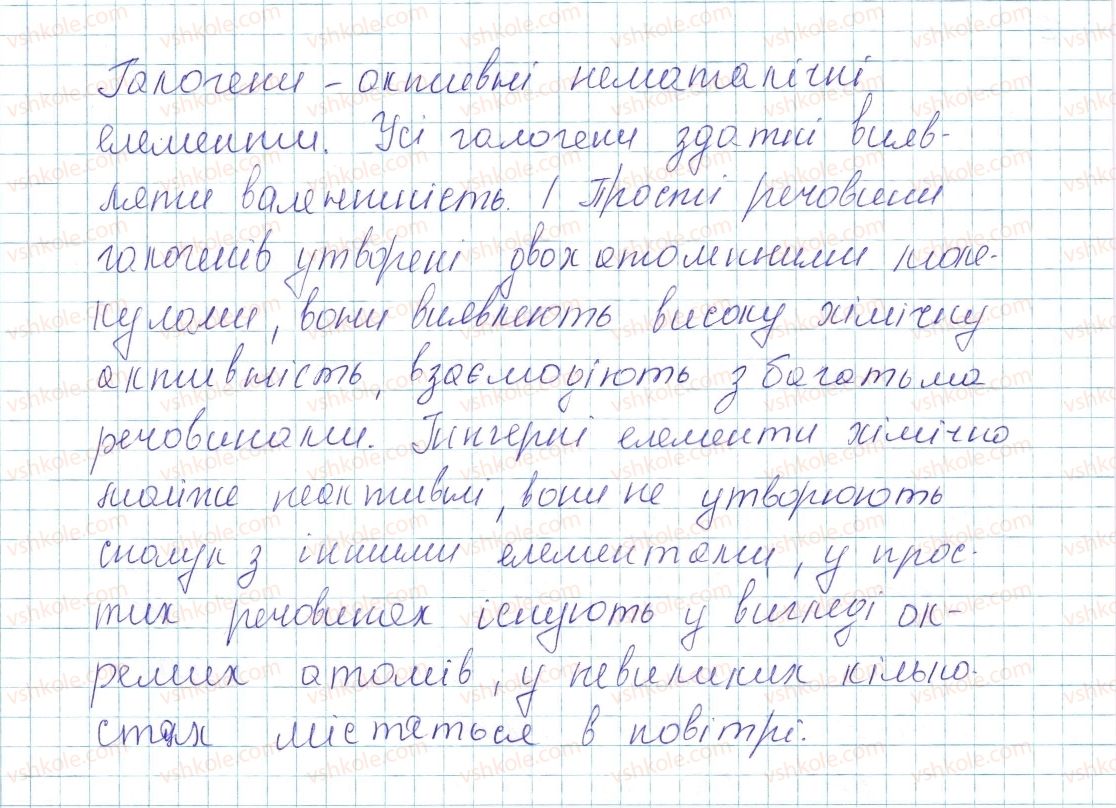 Галогени - активні нематалічні
елементи. Усі галогени здатні вияв-
ляти валентність. I Прості речовини
галогенів утворені двохатомними моле-
кулами, вони виявляють високу хімічну
активність, взаємодіють з багатьма
речовинами. Інертні елементи хімічно
майже неактивні, вони не утворюють
сполук з іншими елементами, у прос-
тих речовинах існують у вигляді ок-
ремих атомів, у невеликих кілько-
стях містяться в повітрі.